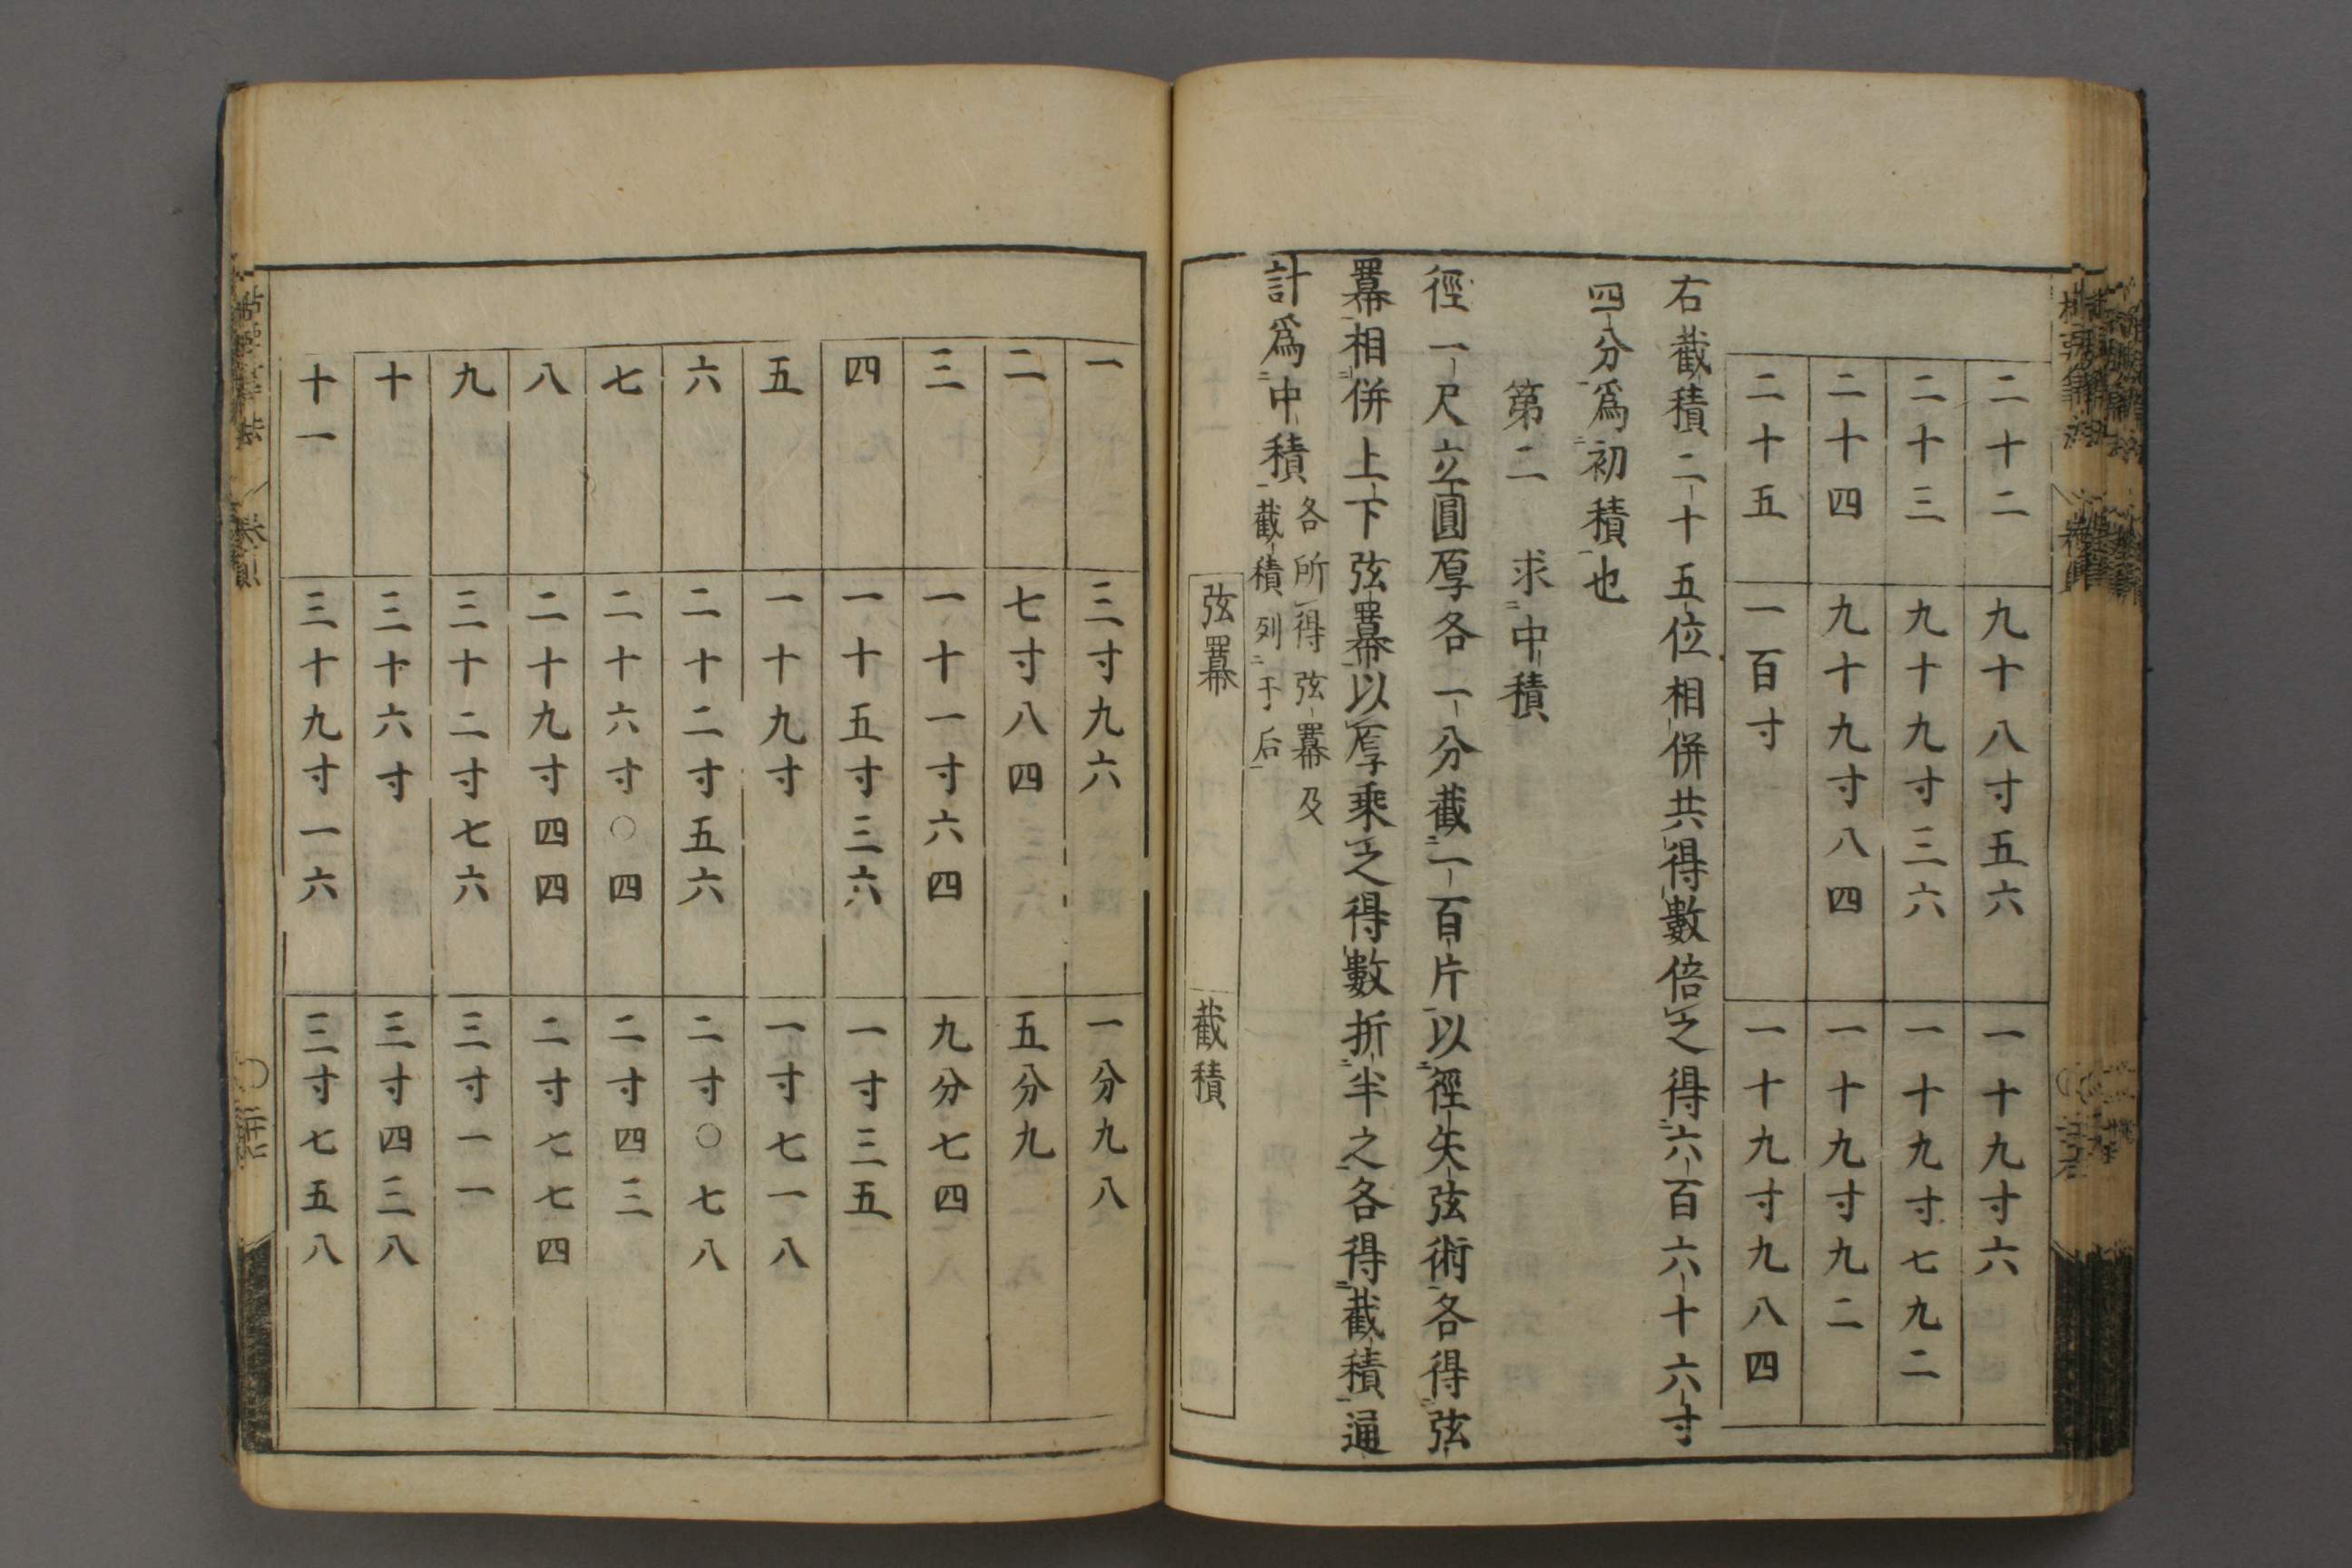 二十二 九十八寸五六 一十九寸六
二十三 九十九寸三六 一十九寸七九二
二十四 九十九寸八四 一十九寸九二
二十五 一百寸 一十九寸九八四
右截積二十五位相併共得數倍之得六百六十六寸
四分爲初積也
第二 求中積
徑一尺立圓厚各一分截一百片以徑矢弦術各得弦
羃相併上下弦羃以厚乘之得數折半之各得截積通
計爲中積
各所得弦羃及
截積列于后
弦羃 截積
一 三寸九六 一分九八
二 七寸八四 五分九
三 一十一寸六四 九分七四
四 一十五寸三六 一寸三五
五 一十九寸 一寸七一八
六 二十二寸五六 二寸〇七八
七 二十六寸〇四 二寸四三
八 二十九寸四四 二寸七七四
九 三十二寸七六 三寸一一
十 三十六寸 三寸四三八
十一 三十九寸一六 三寸七五八